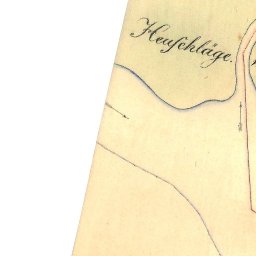 Heuschläge.